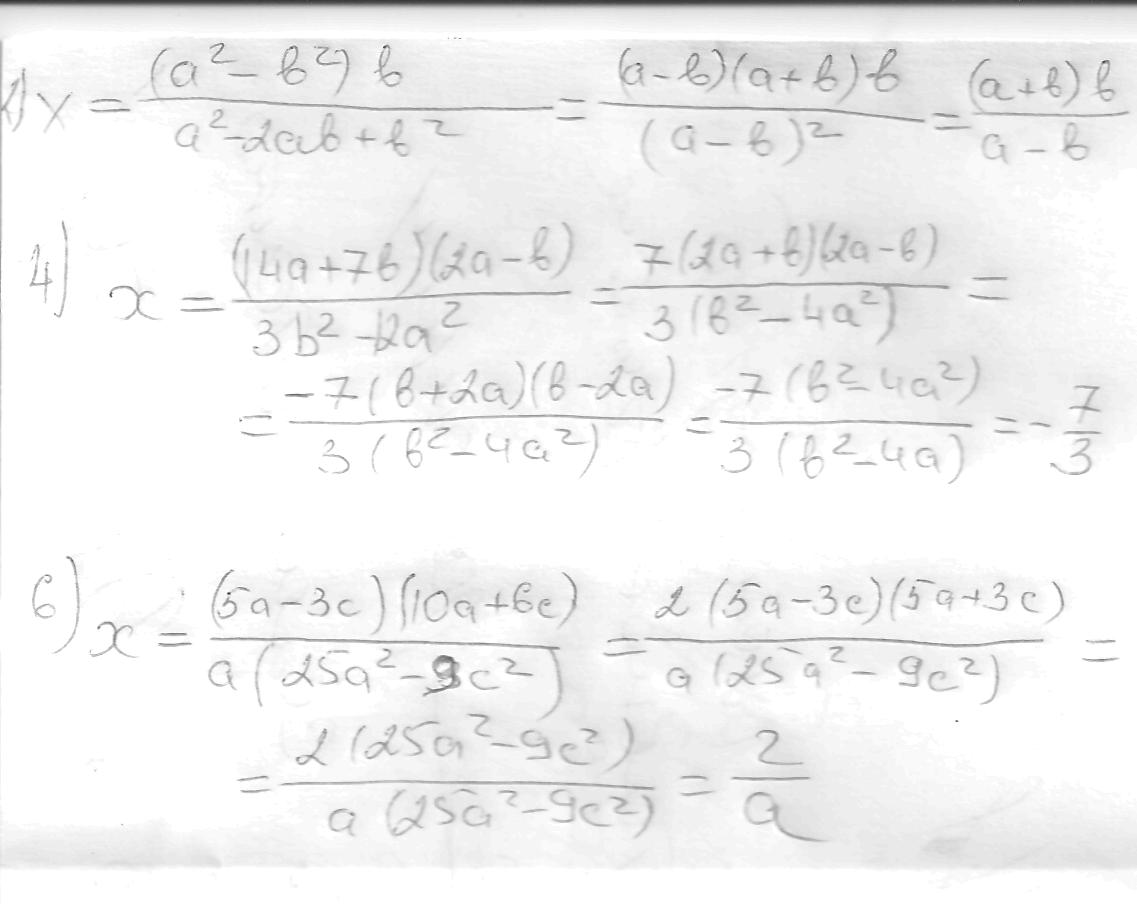 2) x = \frac{(a^2 - b^2) b}{a^2 - 2ab + b^2} = \frac{(a-b)(a+b) \cdot b}{(a-b)^2} = \frac{(a+b) b}{a-b}
4) x = \frac{(14a+7b)(2a-b)}{3b^2 - 12a^2} = \frac{7(2a+b)(2a-b)}{3(b^2-4a^2)} =
= \frac{-7(b+2a)(b-2a)}{3(b^2-4a^2)} = \frac{-7(b^2-4a^2)}{3(b^2-4a)} = -\frac{7}{3}
6) x = \frac{(5a-3c)(10a+6c)}{a(25a^2-9c^2)} = \frac{2(5a-3c)(5a+3c)}{a(25a^2-9c^2)} =
= \frac{2(25a^2-9c^2)}{a(25a^2-9c^2)} = \frac{2}{a}